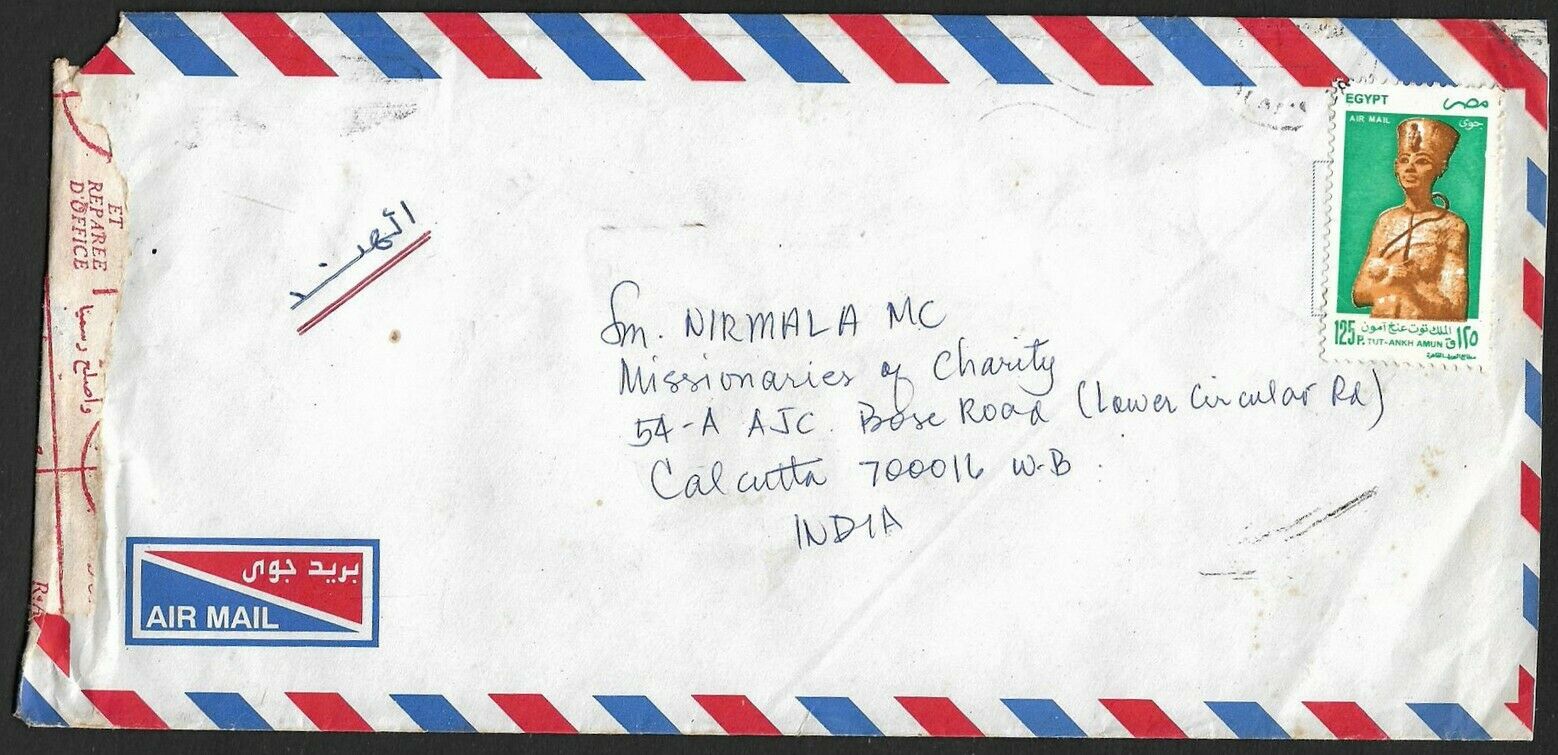 EGYPT مصر
AIR MAIL جوى
الملك توت عنخ آمون
125 P. TUT-ANKH AMUN ١٢٥ ق
الهند
Sm. NIRMALA MC
Missionaries of Charity
54-A AJC. Bose Road (Lower Circular Rd)
Calcutta 700016 W-B.
INDIA
ET
REPAREE
D'OFFICE
واصلح رسميا
بريد جوى
AIR MAIL